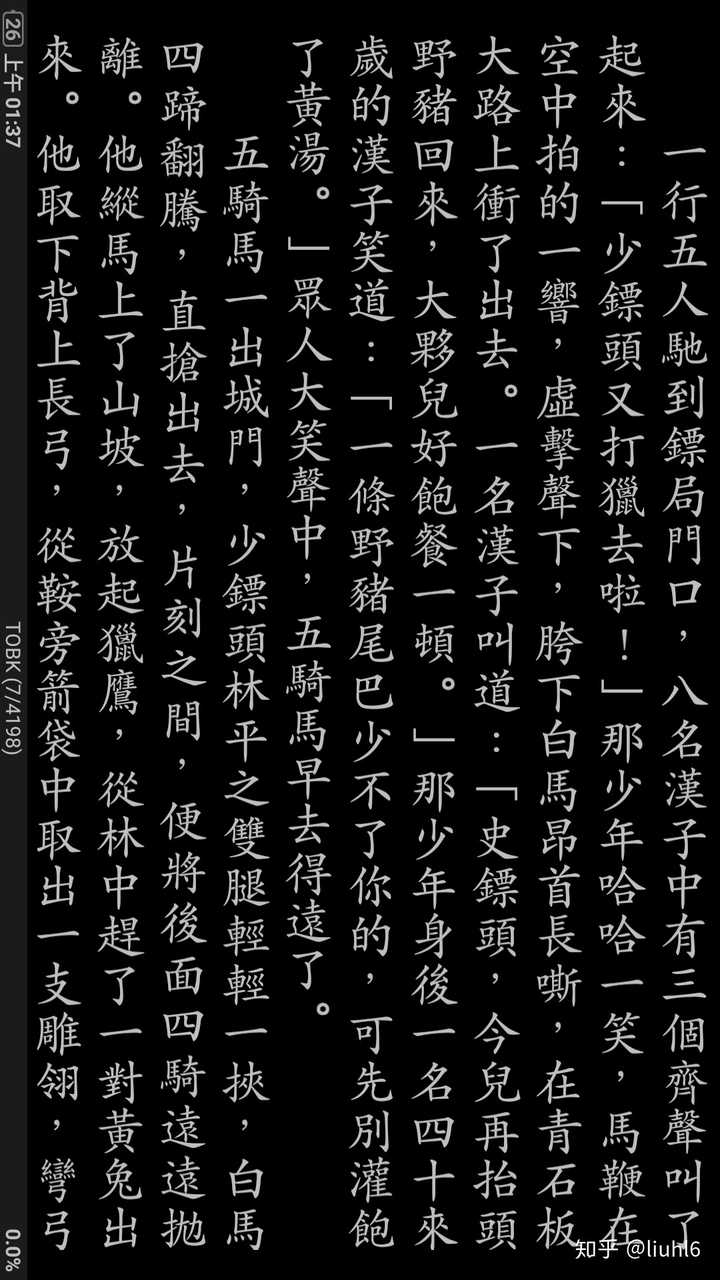 一行五人馳到鏢局門口，八名漢子中有三個齊聲叫了
起來：「少鏢頭又打獵去啦！」那少年哈哈一笑，馬鞭在
空中拍的一響，虛擊聲下，胯下白馬昂首長嘶，在青石板
大路上衝了出去。一名漢子叫道：「史鏢頭，今兒再抬頭
野豬回來，大夥兒好飽餐一頓。」那少年身後一名四十來
歲的漢子笑道：「一條野豬尾巴少不了你的，可先別灌飽
了黃湯。」眾人大笑聲中，五騎馬早去得遠了。
五騎馬一出城門，少鏢頭林平之雙腿輕輕一挾，白馬
四蹄翻騰，直搶出去，片刻之間，便將後面四騎遠遠拋
離。他縱馬上了山坡，放起獵鷹，從林中趕了一對黃兔出
來。他取下背上長弓，從鞍旁箭袋中取出一支雕翎，彎弓
26 上午 01:37
TOBK (7/4198)
0.0%
知乎 @liuhl6